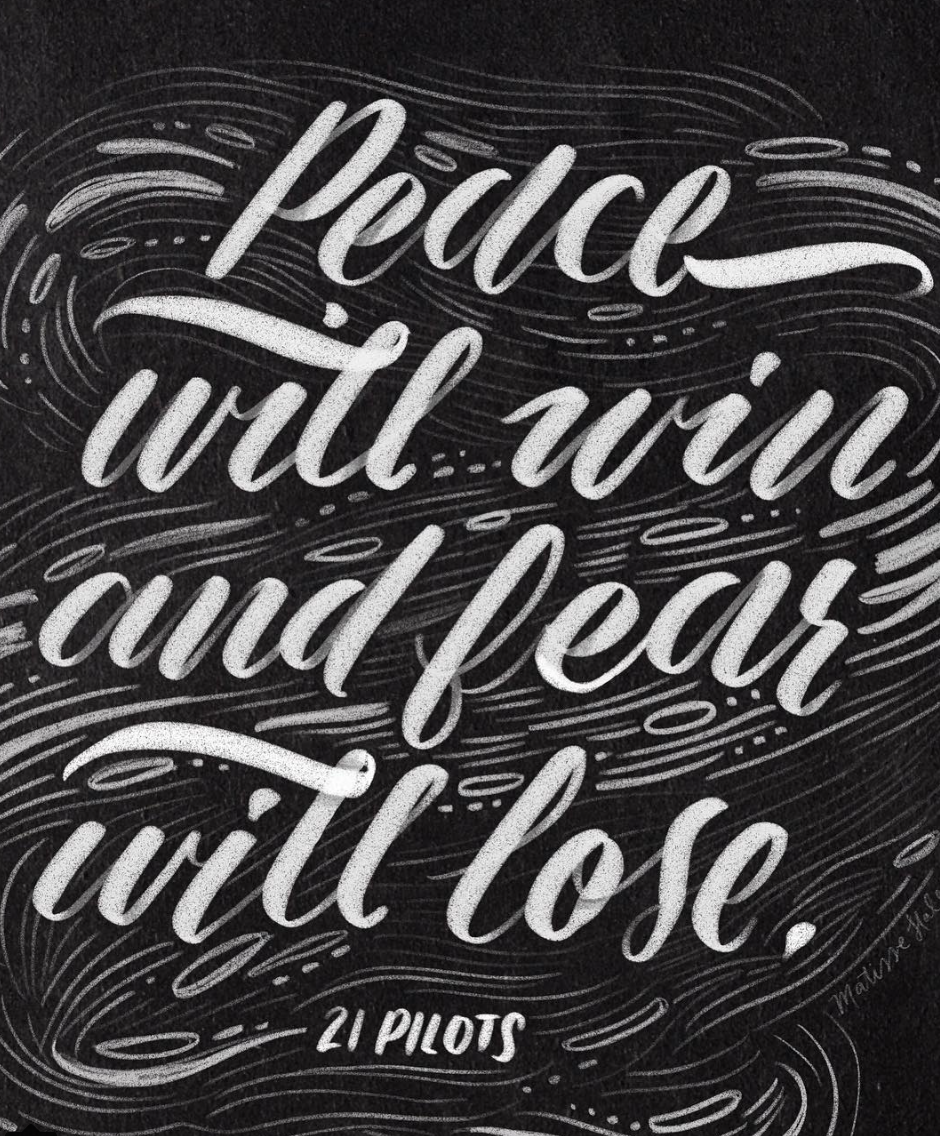 Peace
will win
and fear
will lose.
21 PILOTS
Matisse